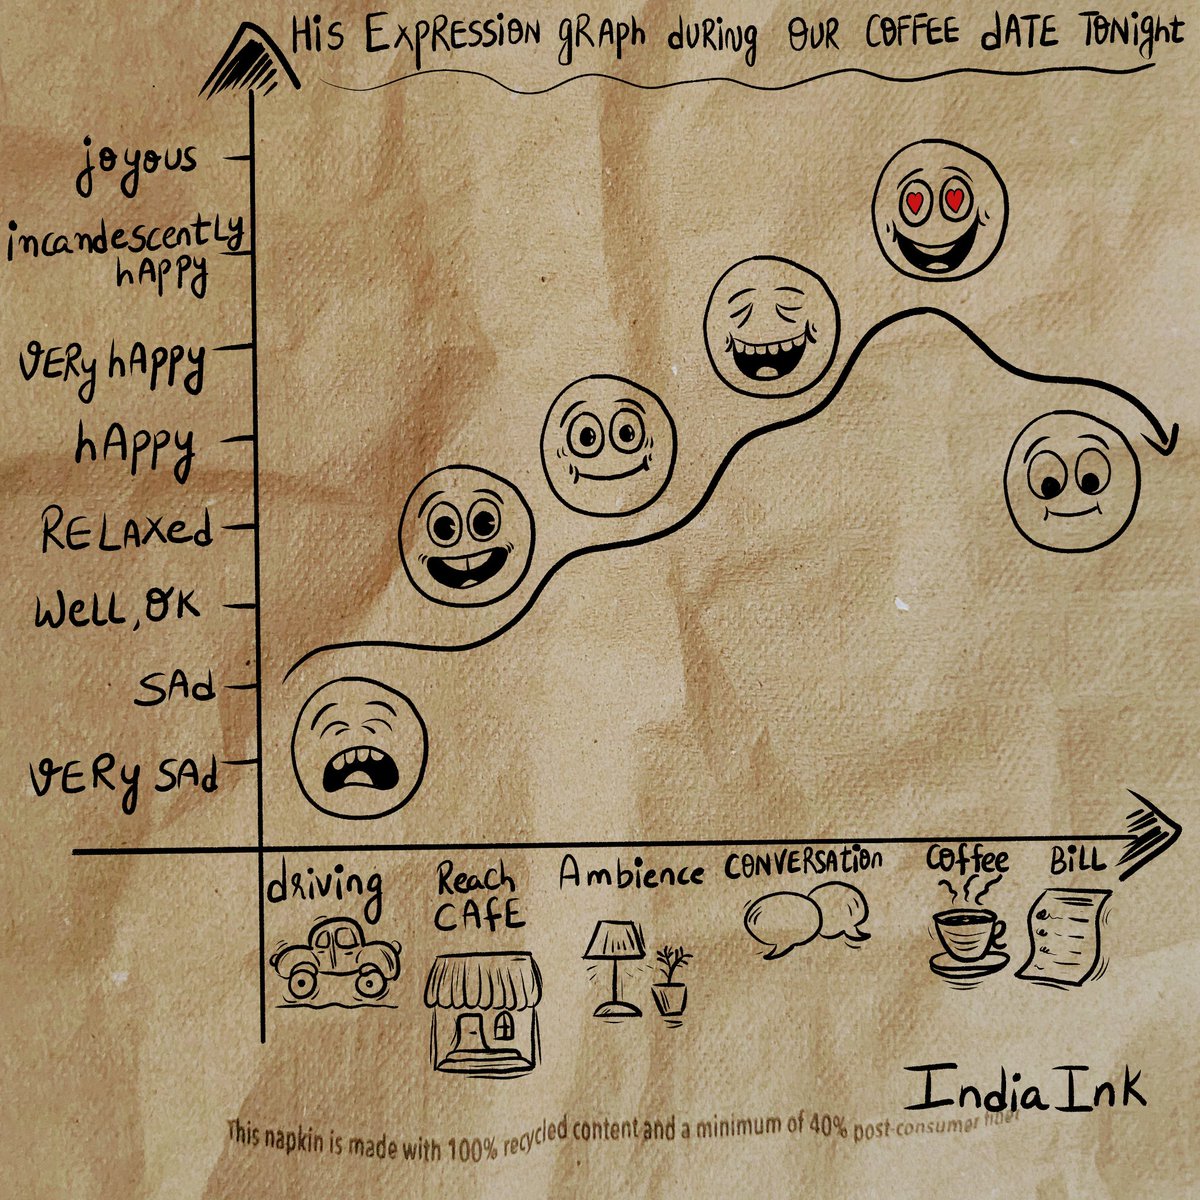 His Expression graph during our coffee date tonight
joyous
incandescently
happy
very happy
happy
Relaxed
Well, ok
sad
very sad
driving
Reach
Cafe
Ambience
Conversation
Coffee
Bill
India Ink
This napkin is made with 100% recycled content and a minimum of 40% post-consumer fiber